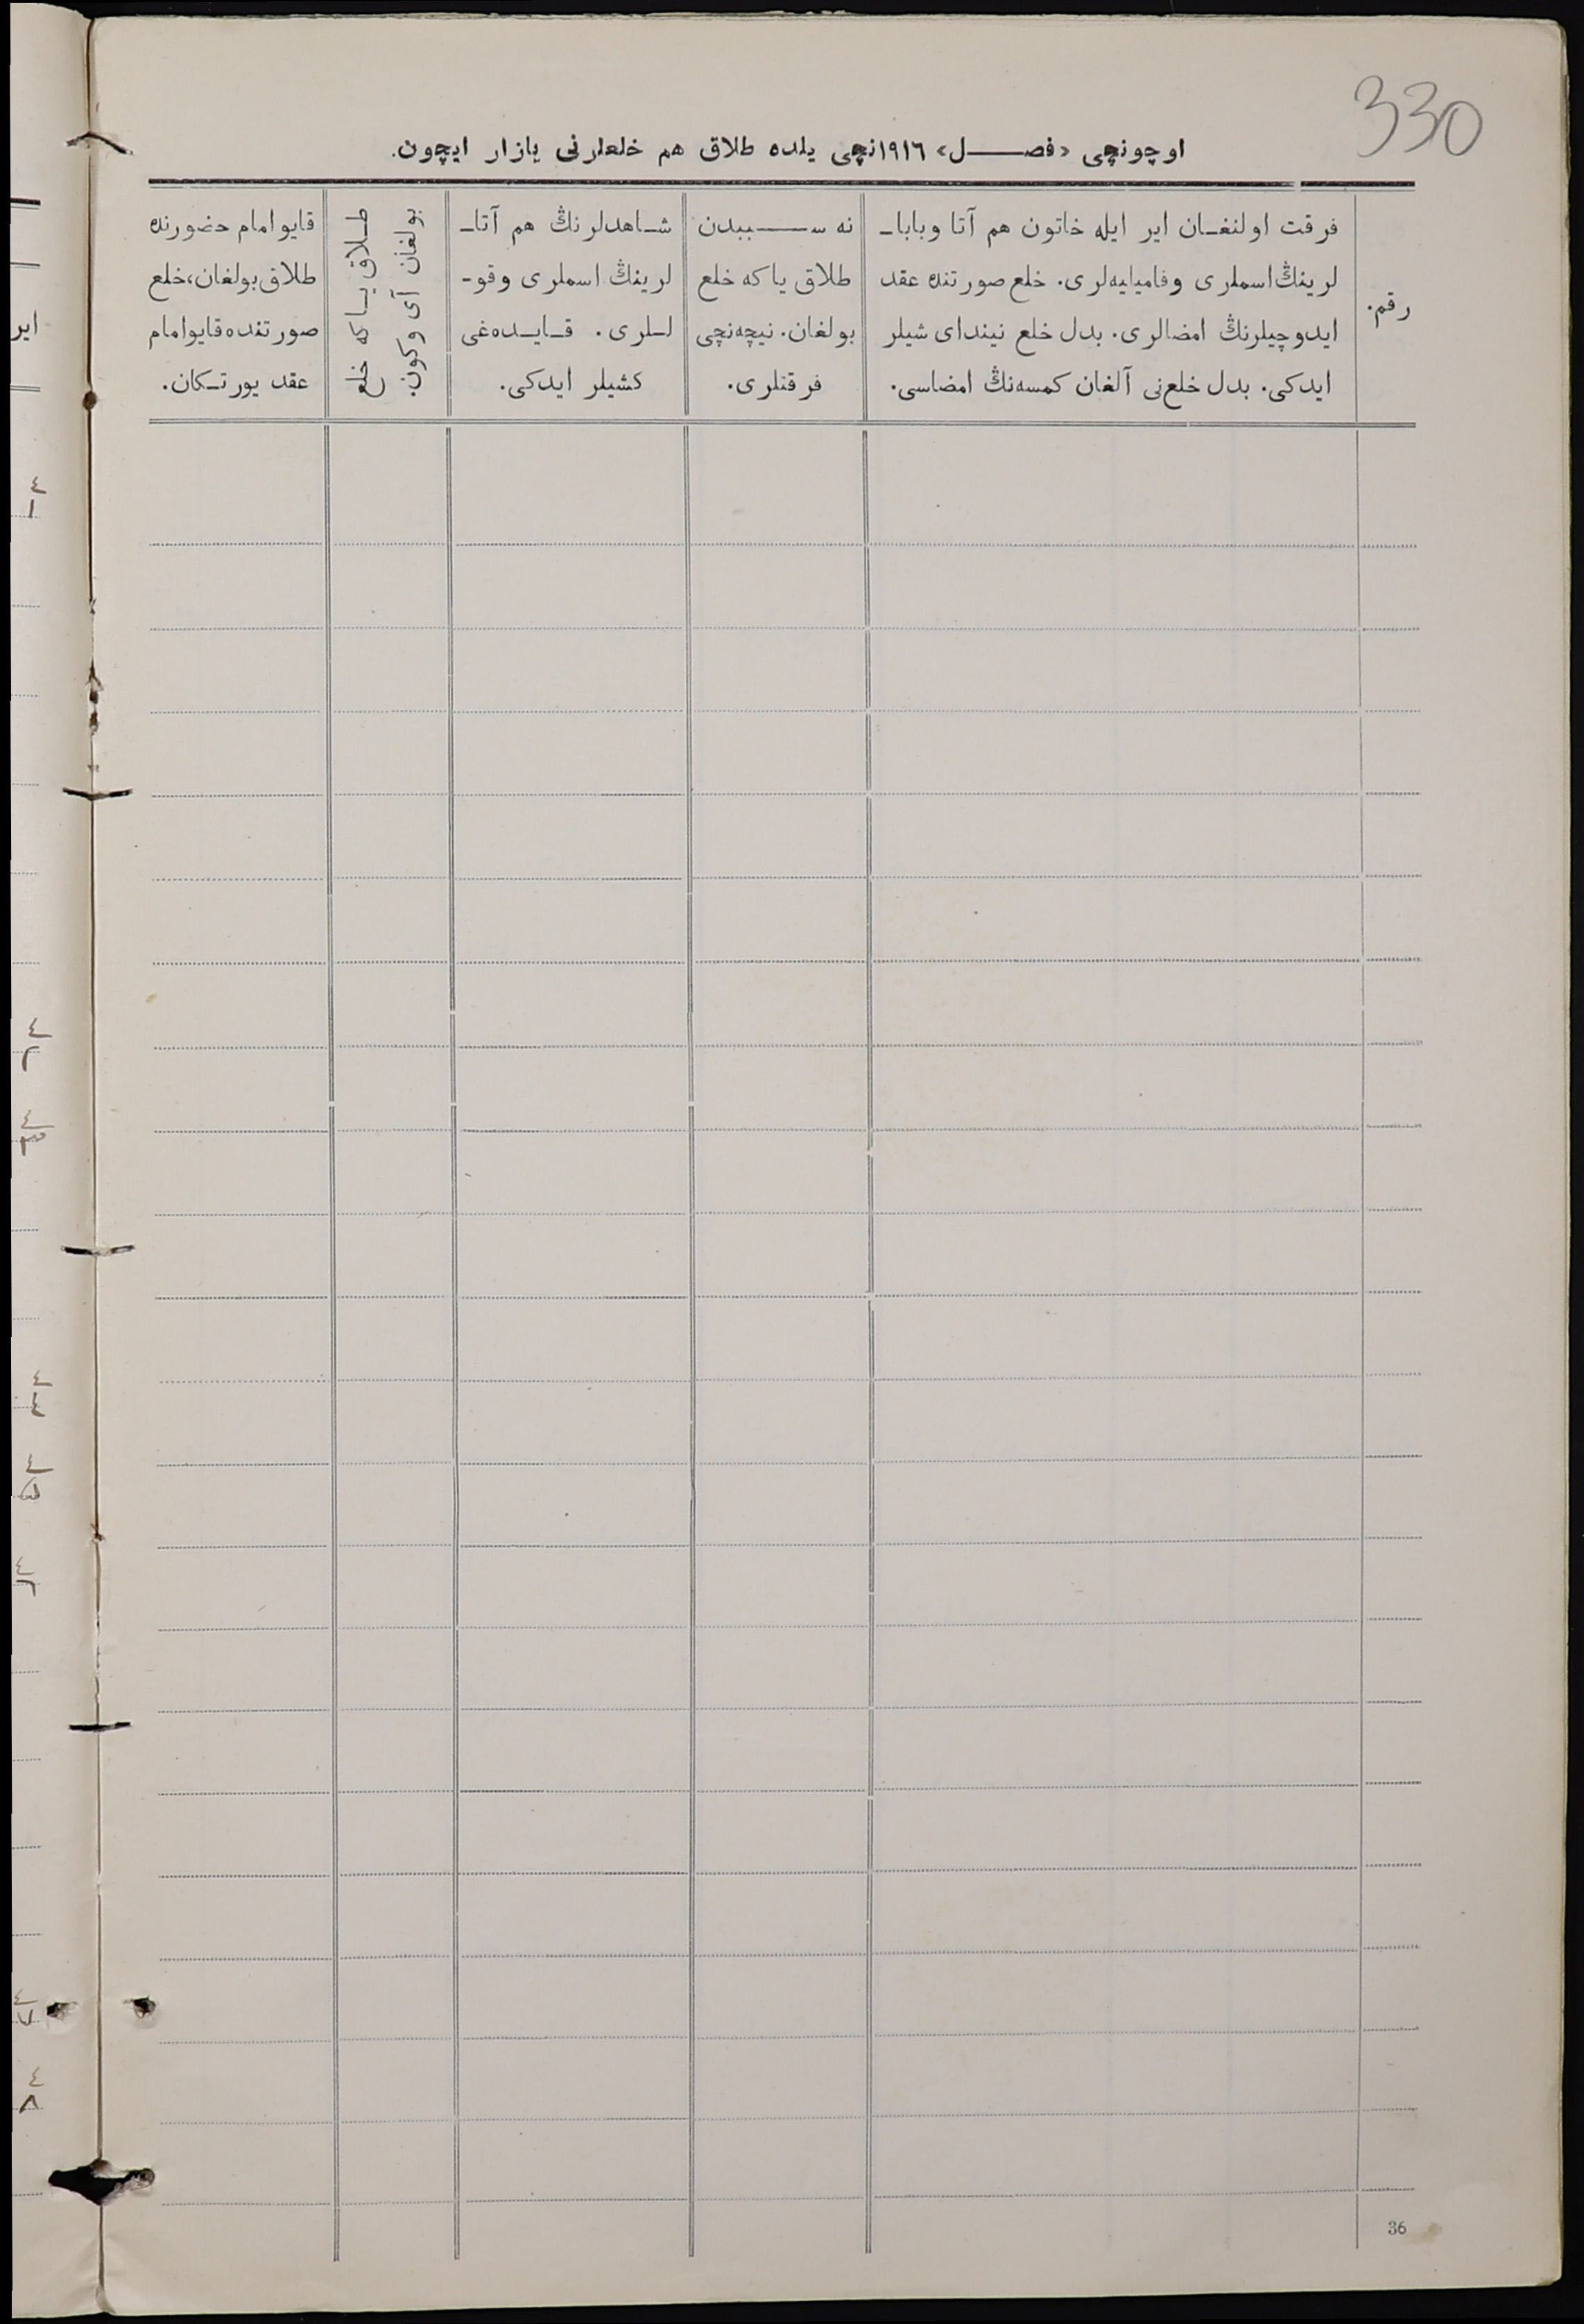 330
اوچونچی «فصـــل» ۱۹۱٦نچی یلده طلاق هم خلعلرنی یازار ایچون.
رقم.
فرقت اولنغـان ایر ایله خاتون هم آتا وبابا‌ـ
لرینڭ اسملری وفامیلیه‌لری. خلع صورتنده عقد
ایدوچیلرنڭ امضالری. بدل خلع نیندای شیلر
ایدکی. بدل خلع‌نی آلغان کمسه‌نڭ امضاسی.
نه ســـببدن
طلاق یاکه خلع
بولغان. نیچه‌نچی
فرقتلری.
شـاهدلرنڭ هم آتا‌ـ
لرینڭ اسملری وقو‌ـ
لـلری. قـایـده‌غی
کشیلر ایدکی.
طـلاق یـاکه خلع
بولغان آی وکون.
قایو امام حضورنده
طلاق بولغان، خلع
صورتنده قایو امام
عقد یورتـکان.
ایر
٤
١
٤
٢
٤
٣
٤
٤
٤
٥
٤
٦
٤
٧
٤
٨
36